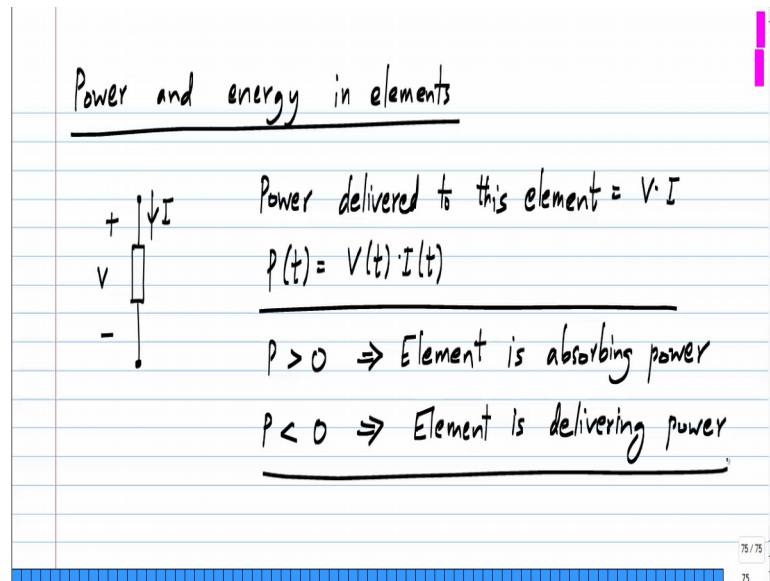 Power and energy in elements
Power delivered to this element = V·I
P(t) = V(t)·I(t)
+
I
V
-
P > 0 ⇒ Element is absorbing power
P < 0 ⇒ Element is delivering power
75 / 75
75